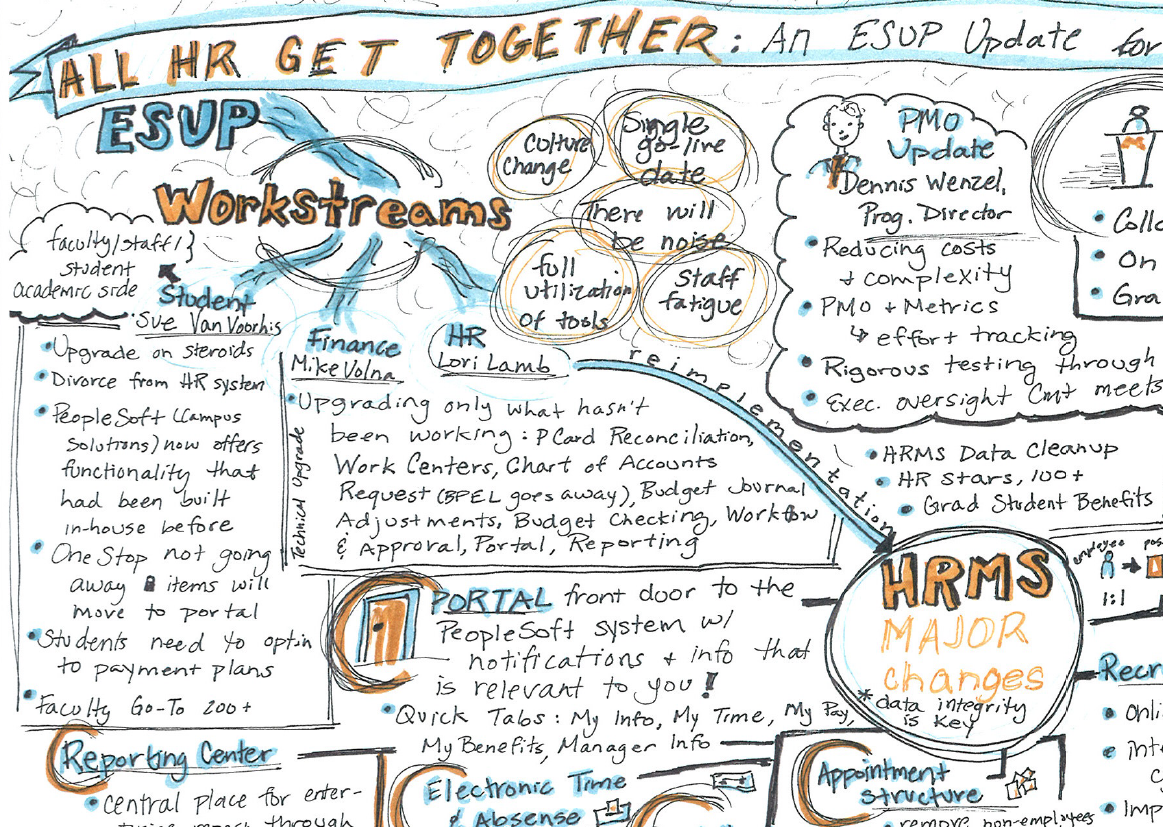 ALL HR GET TOGETHER: An ESUP Update for
ESUP
Workstreams
Culture
Change
Single
go-live
date
There will
be noise
full
utilization
of tools
Staff
fatigue
faculty/staff/}
student
academic side
Student
Sue VanVoorhis
• Upgrade on steroids
• Divorce from HR system
• PeopleSoft (Campus
Solutions) now offers
functionality that
had been built
in-house before
• One Stop not going
away items will
move to portal
• Students need to optin
to payment plans
• Faculty Go-To 200+
Finance
Mike Volna
HR
Lori Lamb
reimplementation
Technical Upgrade
• Upgrading only what hasn't
been working: PCard Reconciliation,
Work Centers, Chart of Accounts
Request (BPEL goes away), Budget Journal
Adjustments, Budget Checking, Workflow
& Approval, Portal, Reporting
PMO
Update
Dennis Wenzel,
Prog. Director
• Reducing costs
+ complexity
• PMO + Metrics
↳ effort tracking
• Rigorous testing through
• Exec. oversight Cmt meets
• Colla
• On
• Gra
• HRMS Data Cleanup
• HR Stars, 100+
• Grad Student Benefits
HRMS
MAJOR
changes
* data integrity
is key
employee
pos
1:1
PORTAL front door to the
PeopleSoft system w/
notifications + info that
is relevant to you!
• Quick Tabs: My Info, My Time, My Pay,
My Benefits, Manager Info
Reporting Center
• central place for enter-
through
Electronic Time
& Absense
Appointment
structure
• remove non-employees
Recr
• Onli
• inte
• Imp